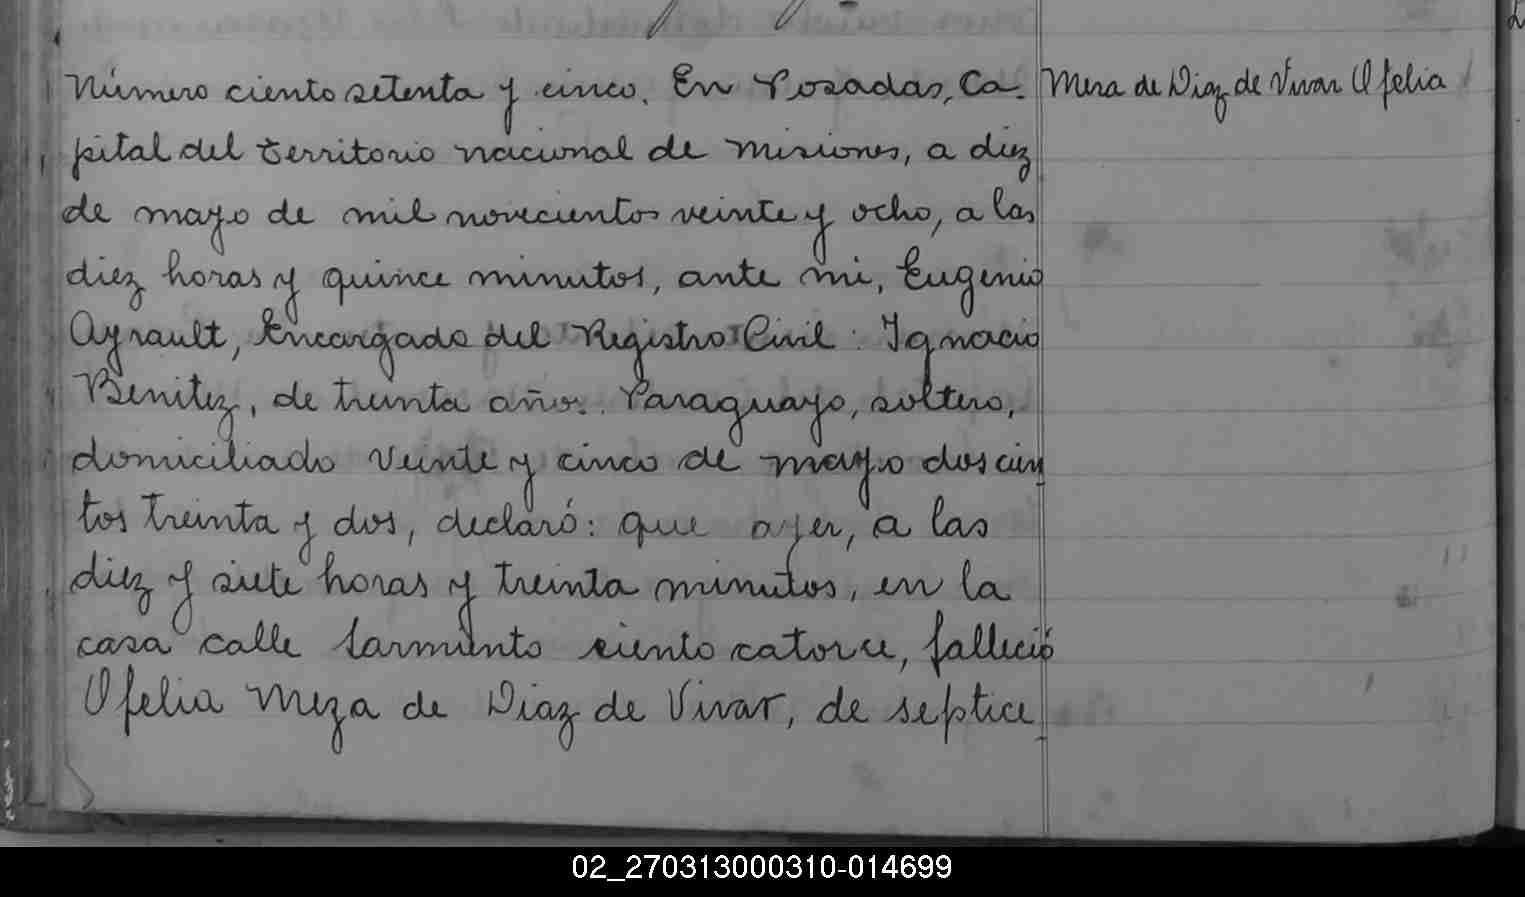 Número ciento setenta y cinco. En Posadas, Ca-
pital del territorio nacional de misiones, a diez
de mayo de mil novecientos veinte y ocho, a las
diez horas y quince minutos, ante mi, Eugenio
Ayrault, Encargado del Registro Civil: Ignacio
Benitez, de treinta años. Paraguayo, soltero,
domiciliado Veinte y cinco de mayo doscien
tos treinta y dos, declaró: que ayer, a las
diez y siete horas y treinta minutos, en la
casa calle Sarmiento ciento catorce, falleció
Ofelia Meza de Diaz de Vivar, de septice
Meza de Diaz de Vivar Ofelia
02_270313000310-014699